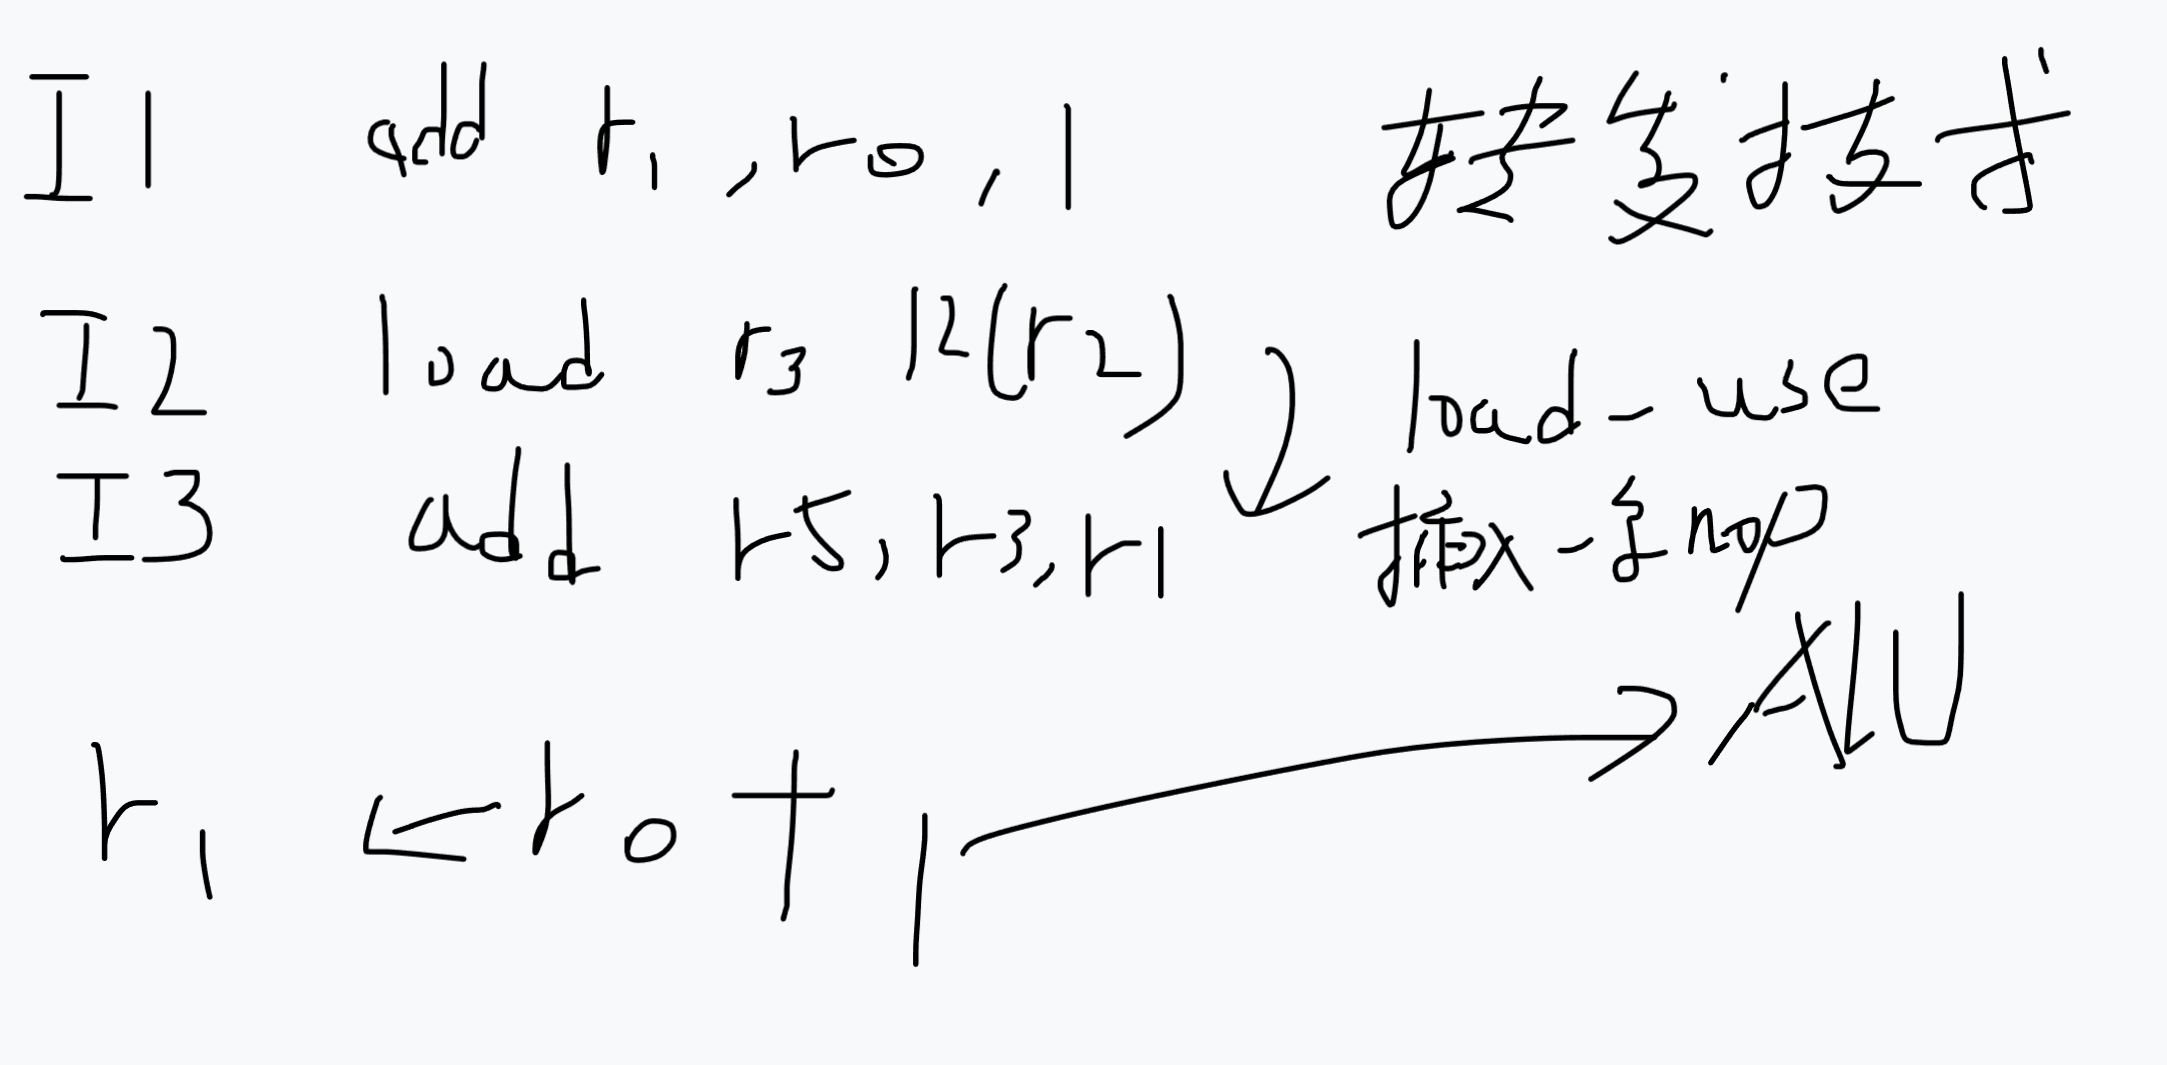 I1 add r1, r0, 1 转发技术
I2 load r3 12(r2) load-use
I3 add r5, r3, r1 插入一条nop
r1 ← r0 + 1 → ALU